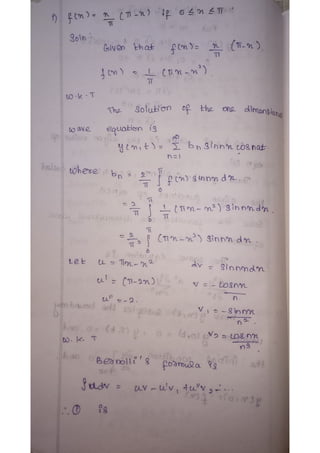 1) f(x) = x/π (π-x) if 0 ≤ x ≤ π
Soln
Given that f(x) = x/π (π-x)
f(x) = 1/π (πx - x²)
W.K.T
The solution of the one dimensional
wave equation is
y(x,t) = ∞ Σ n=1 bn sinnx cosnat
where bn = 2/π ∫₀^π f(x) sinnx dx
= 2/π ∫₀^π 1/π (πx - x²) sinnx dx
= 2/π² ∫₀^π (πx - x²) sinnx dx
Let u = πx - x² dv = sinnxdx
u' = (π-2x) v = -cosnx/n
u'' = -2. v₁ = -sinnx/n²
v₂ = cosnx/n³
W.K.T
Bernolli's formula is
∫udv = uv - u'v₁ + u''v₂ - ...
∴ ① is